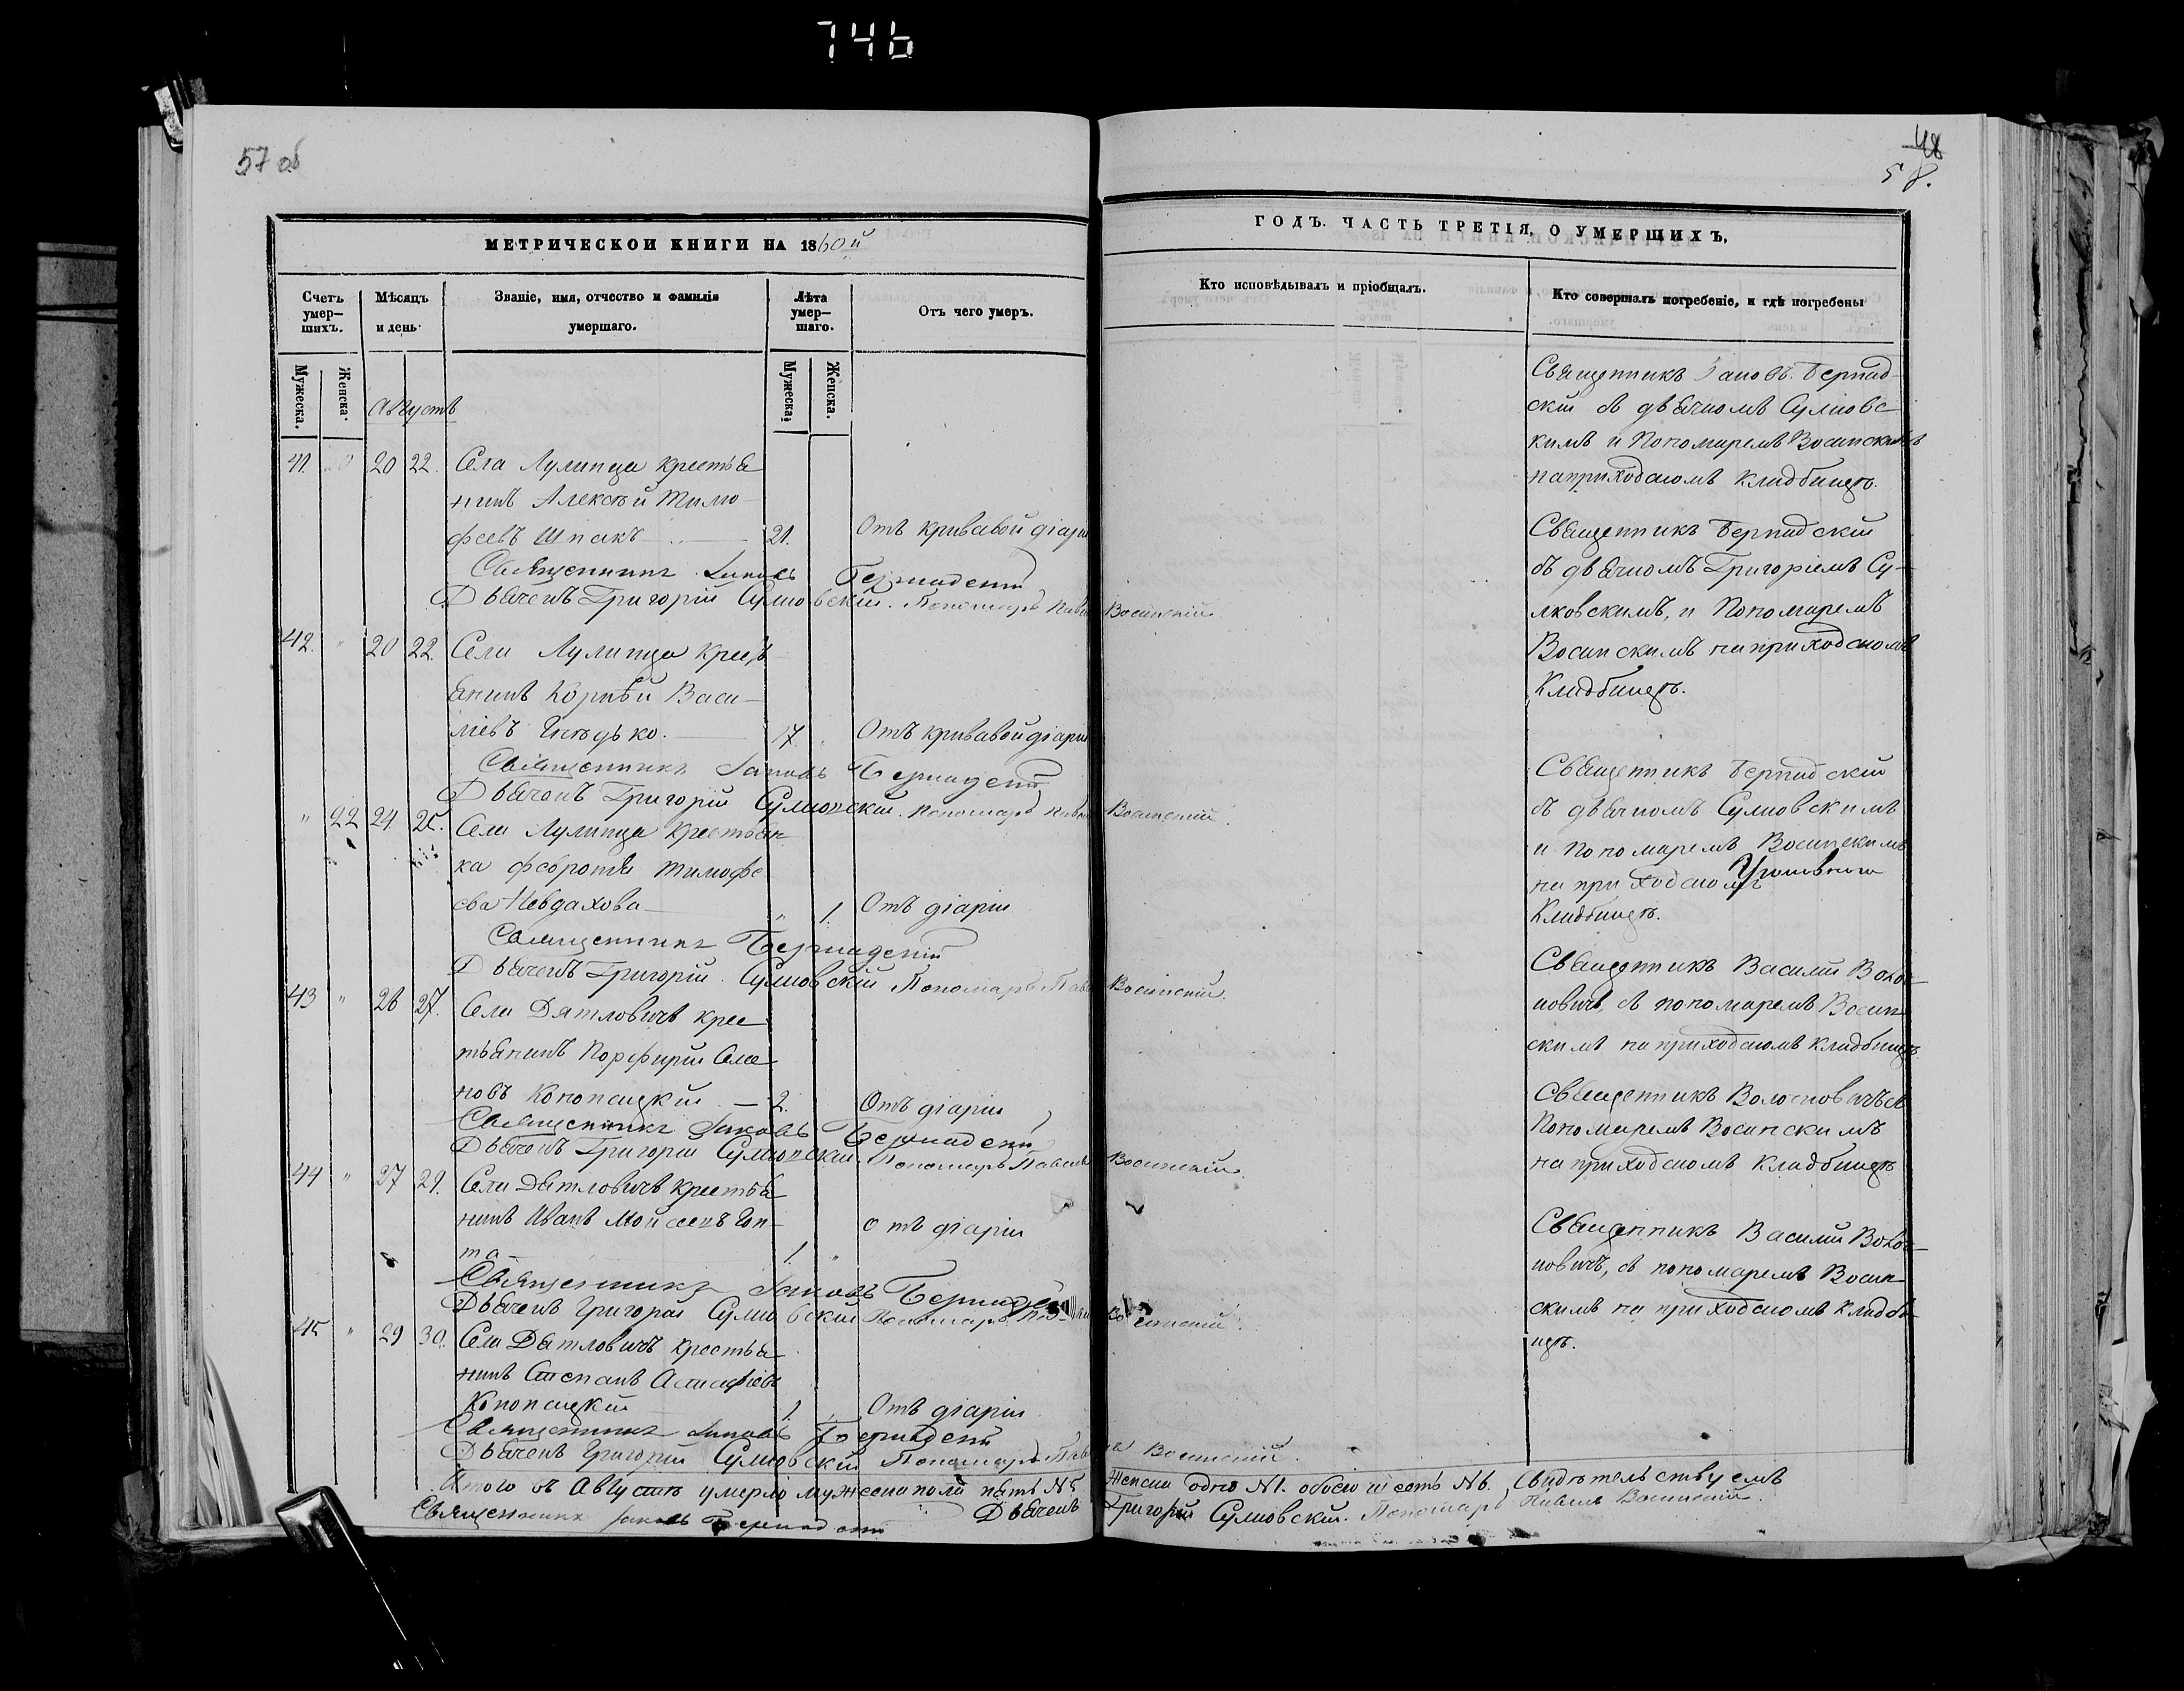 746
57 об
48
58.
МЕТРИЧЕСКОЙ КНИГИ НА 1860й
ГОДЪ. ЧАСТЬ ТРЕТІЯ, О УМЕРШИХЪ,
Счетъ умер-
шихъ.
Мѣсяцъ
и день.
Званіе, имя, отчество и фамилія
умершаго.
Лѣта
умер-
шаго.
Отъ чего умеръ.
Кто исповѣдывалъ и пріобщалъ.
Кто совершалъ погребеніе, и гдѣ погребены
Мужеска.
Женска.
Мужеска.
Женска.
Августъ
41. 20 22. Села Лулинца крестья
нинъ Алексѣй Тимо-
феевъ Шпакъ 21. Отъ кривавой діаріи
Священникъ Іаковъ Бернадскій
Дьячекъ Григорій Сулковскій. Пономарь Павелъ Восинскій
Священникъ Іаковъ Бернад-
скій съ дьячкомъ Сулковс-
кимъ и Пономаремъ Восинскимъ
на приходскомъ кладбищѣ.
42. " 20 22. Села Лулинца крестъ
янинъ Корнѣй Васи-
ліевъ 17. Отъ кривавой діаріи
Священникъ Іаковъ Бернадскій
Дьячекъ Григорій Сулковскій. Пономарь Павелъ Восинскій.
Священникъ Бернадскій
съ дьячкомъ Григоріемъ Су-
лковскимъ, и Пономаремъ
Восинскимъ на приходскомъ
Кладбищѣ.
" 22 24 25. Села Лулинца крестьян-
ка Февронія Тимофе
ева Невдахова " 1. Отъ діаріи
Священникъ Бернадскій
Дьячекъ Григорій Сулковскій Пономарь Павелъ Восинскій.
Священникъ Бернадскій
съ дьячкомъ Сулковскимъ
и Пономаремъ Восинскимъ
на приходскомъ
Кладбищѣ.
43 " 26 27. Села Дятловичъ крес
тьянинъ Порфирій Семе
новъ Конопацкій 2. Отъ діаріи
Священникъ Іаковъ Бернадскій
Дьячекъ Григорій Сулковскій. Пономарь Павелъ Восинскій.
Священникъ Василій Волос-
новичъ, съ пономаремъ Восин
скимъ на приходскомъ кладбищѣ.
44 " 27 29. Села Дятловичъ крестья
нинъ Иванъ Мойсеевъ Гоп-
та 1. " отъ діаріи
Священникъ Іаковъ Бернадскій
Дьячекъ Григорій Сулковскій Пономарь Павелъ Восинскій.
Священникъ Волосновичъ съ
Пономаремъ Восинскимъ
на приходскомъ кладбищѣ
45 " 29 30. Села Дятловичъ крестья
нинъ Степанъ
Конопацкій 1. Отъ діаріи
Священникъ Іаковъ Бернадскій
Дьячекъ Григорій Сулковскій Пономарь Павелъ Восинскій.
Священникъ Василій Волос-
новичъ, съ пономаремъ Восин-
скимъ на приходскомъ кладби-
щѣ.
Итого въ Августѣ умерло мужеска пола пять №5. женска одно №1. обоего шесть №6. Свидѣтельствуемъ
Священникъ Іаковъ Бернадскій Дьячекъ Григорій Сулковскій. Пономарь Павелъ Восинскій.